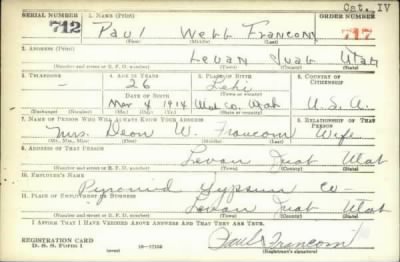 Cat. IV
SERIAL NUMBER 1. NAME (Print) ORDER NUMBER
712 Paul Webb Francom 717
(First) (Middle) (Last)
2. ADDRESS (Print)
Levan Juab Utah
(Number and street or R. F. D. number) (Town) (County) (State)
3. TELEPHONE 4. AGE IN YEARS 5. PLACE OF BIRTH 6. COUNTRY OF CITIZENSHIP
- 26 Lehi
DATE OF BIRTH (Town)
Mar 4 1914 Utah U.S.A.
(Exchange) (Number) (Mo.) (Day) (Yr.) (State or country)
7. NAME OF PERSON WHO WILL ALWAYS KNOW YOUR ADDRESS 8. RELATIONSHIP OF THAT PERSON
Mrs. Deon W. Francom Wife
(Mr., Mrs., Miss) (First) (Middle) (Last)
9. ADDRESS OF THAT PERSON
Levan Juab Utah
(Number and street or R. F. D. number) (Town) (County) (State)
10. EMPLOYER'S NAME
Pyramid Gypsum Co -
11. PLACE OF EMPLOYMENT OR BUSINESS
Levan Juab Utah
(Number and street or R. F. D. number) (Town) (County) (State)
I AFFIRM THAT I HAVE VERIFIED ABOVE ANSWERS AND THAT THEY ARE TRUE.
REGISTRATION CARD
D. S. S. Form 1 16-17105 Paul Francom
(Registrant's signature)